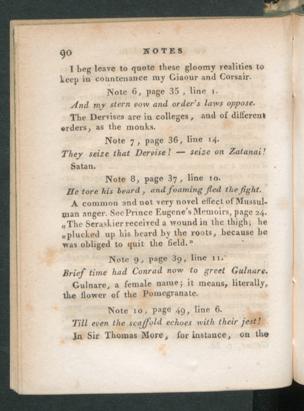 90 NOTES
I beg leave to quote these gloomy realities to
keep in countenance my Giaour and Corsair.
Note 6, page 35, line 1.
And my stern vow and order's laws oppose.
The Dervises are in colleges, and of different
orders, as the monks.
Note 7, page 36, line 14.
They seize that Dervise! — seize on Zatanai!
Satan.
Note 8, page 37, line 10.
He tore his beard, and foaming fled the fight.
A common and not very novel effect of Mussul-
man anger. See Prince Eugene's Memoirs, page 24.
„The Seraskier received a wound in the thigh; he
»plucked up his beard by the roots, because he
was obliged to quit the field.»
Note 9, page 39, line 11.
Brief time had Conrad now to greet Gulnare.
Gulnare, a female name; it means, literally,
the flower of the Pomegranate.
Note 10, page 49, line 6.
Till even the scaffold echoes with their jest!
In Sir Thomas More, for instance, on the